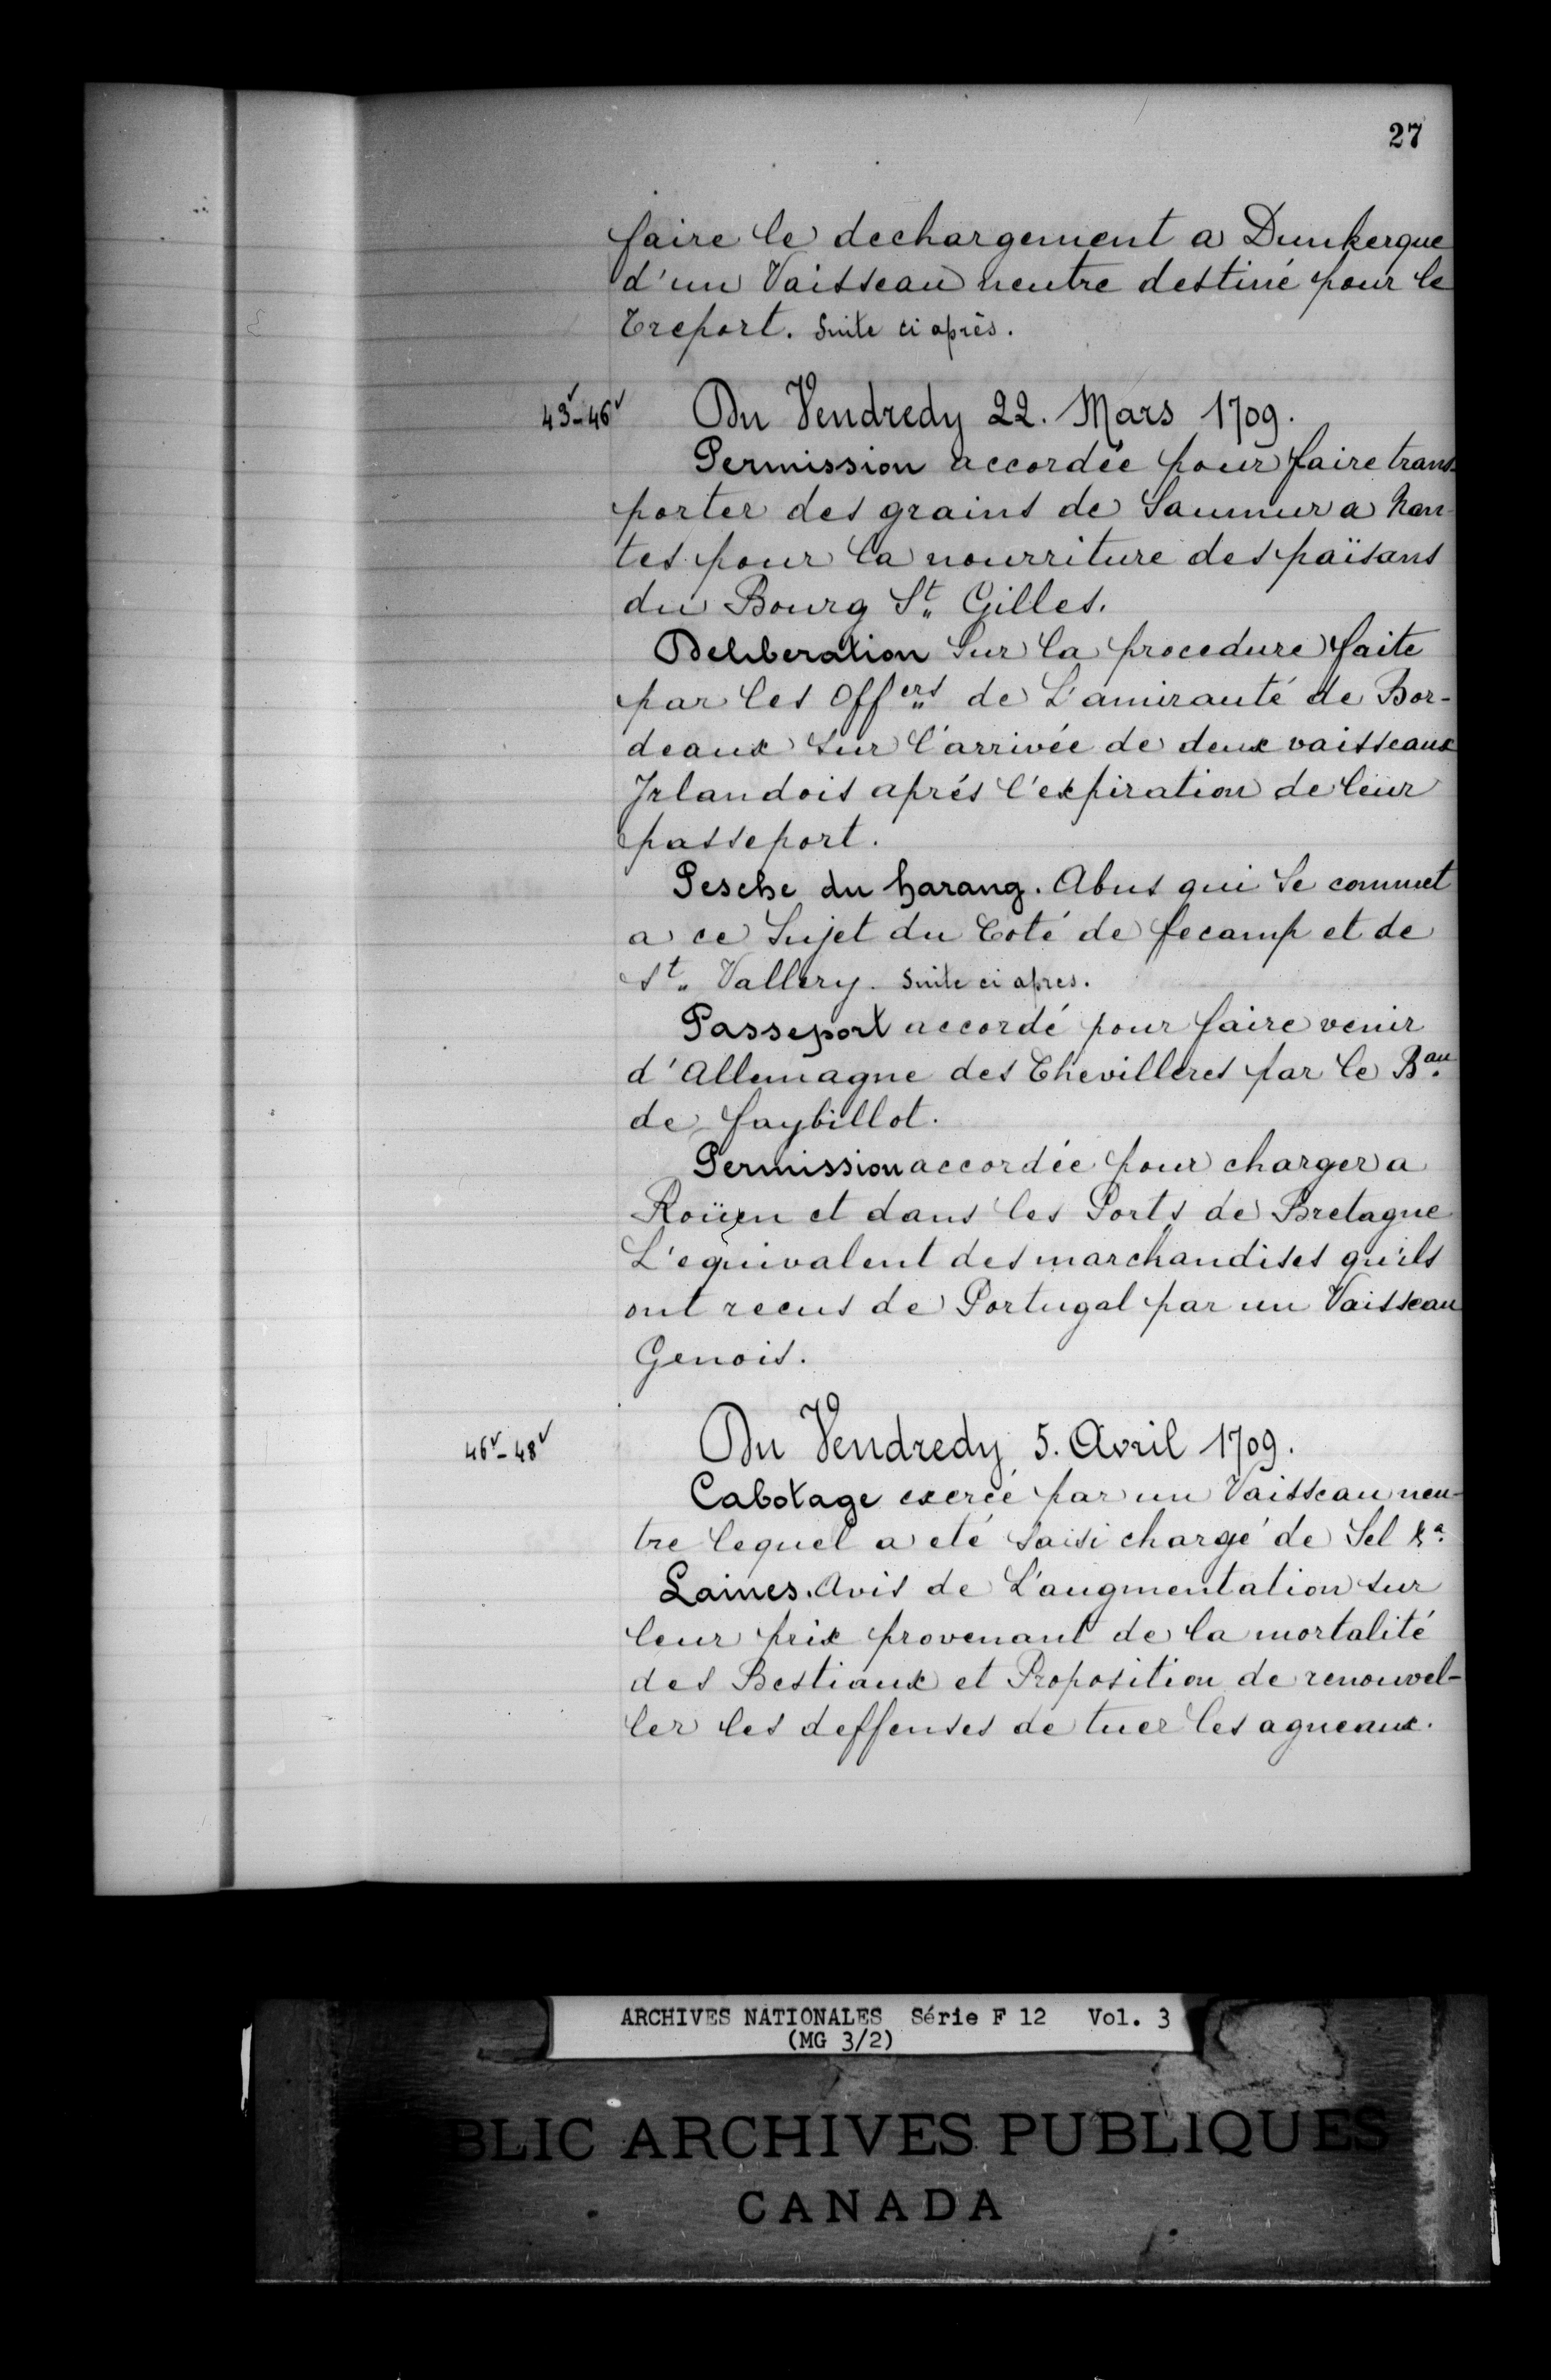 27
faire le dechargement a Dunkerque
d'un Vaisseau neutre destiné pour le
Treport. Suite ci après.
43v-46v Du Vendredy 22. Mars 1709.
Permission accordée pour faire trans-
porter des grains de Saumur a Nan-
tes pour la nourriture des païsans
du Bourg St. Gilles.
Deliberation Sur la procedure faite
par les Offers de L'amirauté de Bor-
deaux sur l'arrivée de deux vaisseaux
Irlandois aprés l'expiration de leur
passeport.
Pesche du harang. Abus qui Se commet
a ce Sujet du Coté de fecamp et de
St. Vallery. Suite ci apres.
Passeport accordé pour faire venir
d'Allemagne des Chevilleres par le Bau.
de faybillot.
Permission accordée pour charger a
Roüen et dans les Ports de Bretagne
L'equivalent des marchandises qu'ils
ont recus de Portugal par un Vaisseau
Genois.
46v-48v Du Vendredy 5. Avril 1709.
Cabotage exercé par un Vaisseau neu-
tre lequel a eté saisi chargé de Sel &a.
Laines. Avis de L'augmentation sur
leur prix provenant de la mortalité
des Bestiaux et Proposition de renouvel-
ler les deffenses de tuer les agneaux.
ARCHIVES NATIONALES Série F 12 Vol. 3
(MG 3/2)
BLIC ARCHIVES PUBLIQUES
CANADA